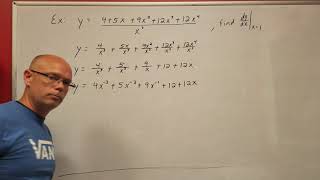 Ex: y = (4+5x+9x²+12x³+12x⁴)/x³ , find dy/dx|ₓ₌₁
y = 4/x³ + 5x/x³ + 9x²/x³ + 12x³/x³ + 12x⁴/x³
y = 4/x³ + 5/x² + 9/x + 12 + 12x
y = 4x⁻³ + 5x⁻² + 9x⁻¹ + 12 + 12x
VAN